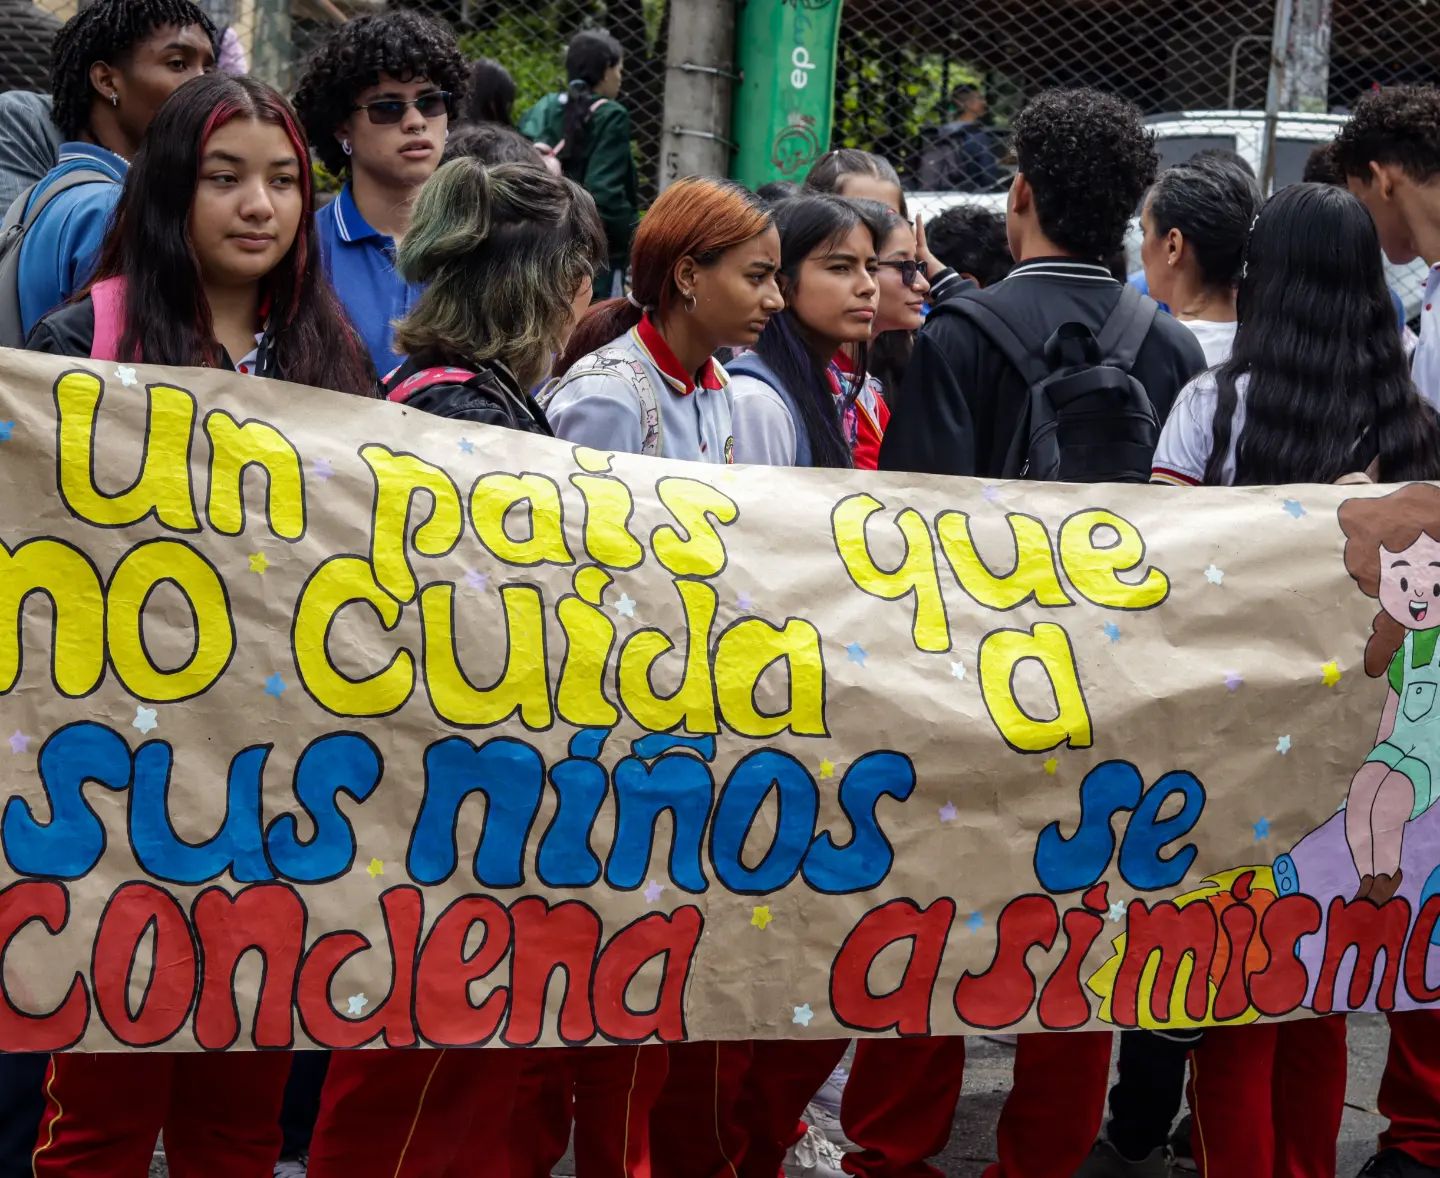 un país que
no cuida a
sus niños se
condena a sí mismo
ep